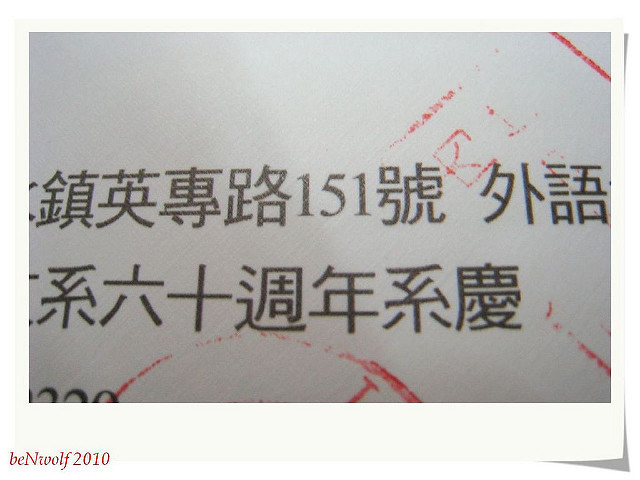 鎮英專路151號 外語
系六十週年系慶
320
beNwolf 2010